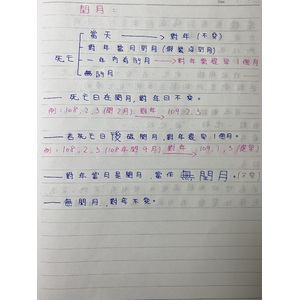 閏月：
當天 → 對年（不變）
對年當月閏月（假裝沒閏月）
死亡 一年內有閏月 → 對年要提早1個月
無閏月
— 死亡日在閏月，對年日不變。
例：108.2.3（閏2月） 對年→ 109.2.3
— 若死亡日後碰閏月，對年提早1個月。
例：108.2.3（108年閏9月） 對年→ 109.1.3（提早）
— 對年當月是閏月，當作無閏月。
— 無閏月，對年不變。